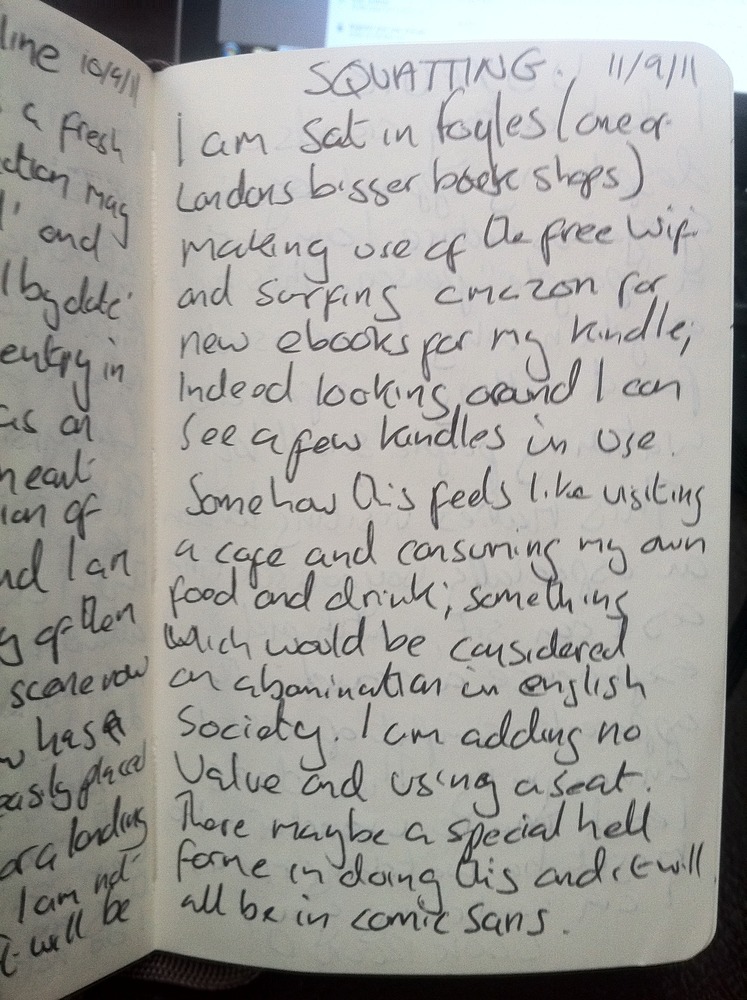 line 10/9/11
a fresh
ction may
l' and
l by date
entry in
as an
ion of
nd I an
y often
scene now
w has a
easily placed
or a landing
I am not
it will be
SQUATTING. 11/9/11
I am sat in foyles (one of
Londons bigger book shops)
making use of the free wifi
and surfing amazon for
new ebooks for my kindle;
Indeed looking around I can
see a few kindles in use.
Somehow this feels like visiting
a cafe and consuming my own
food and drink; something
which would be considered
an abomination in english
Society. I am adding no
value and using a seat.
There maybe a special hell
for me in doing this and it will
all be in comic sans.